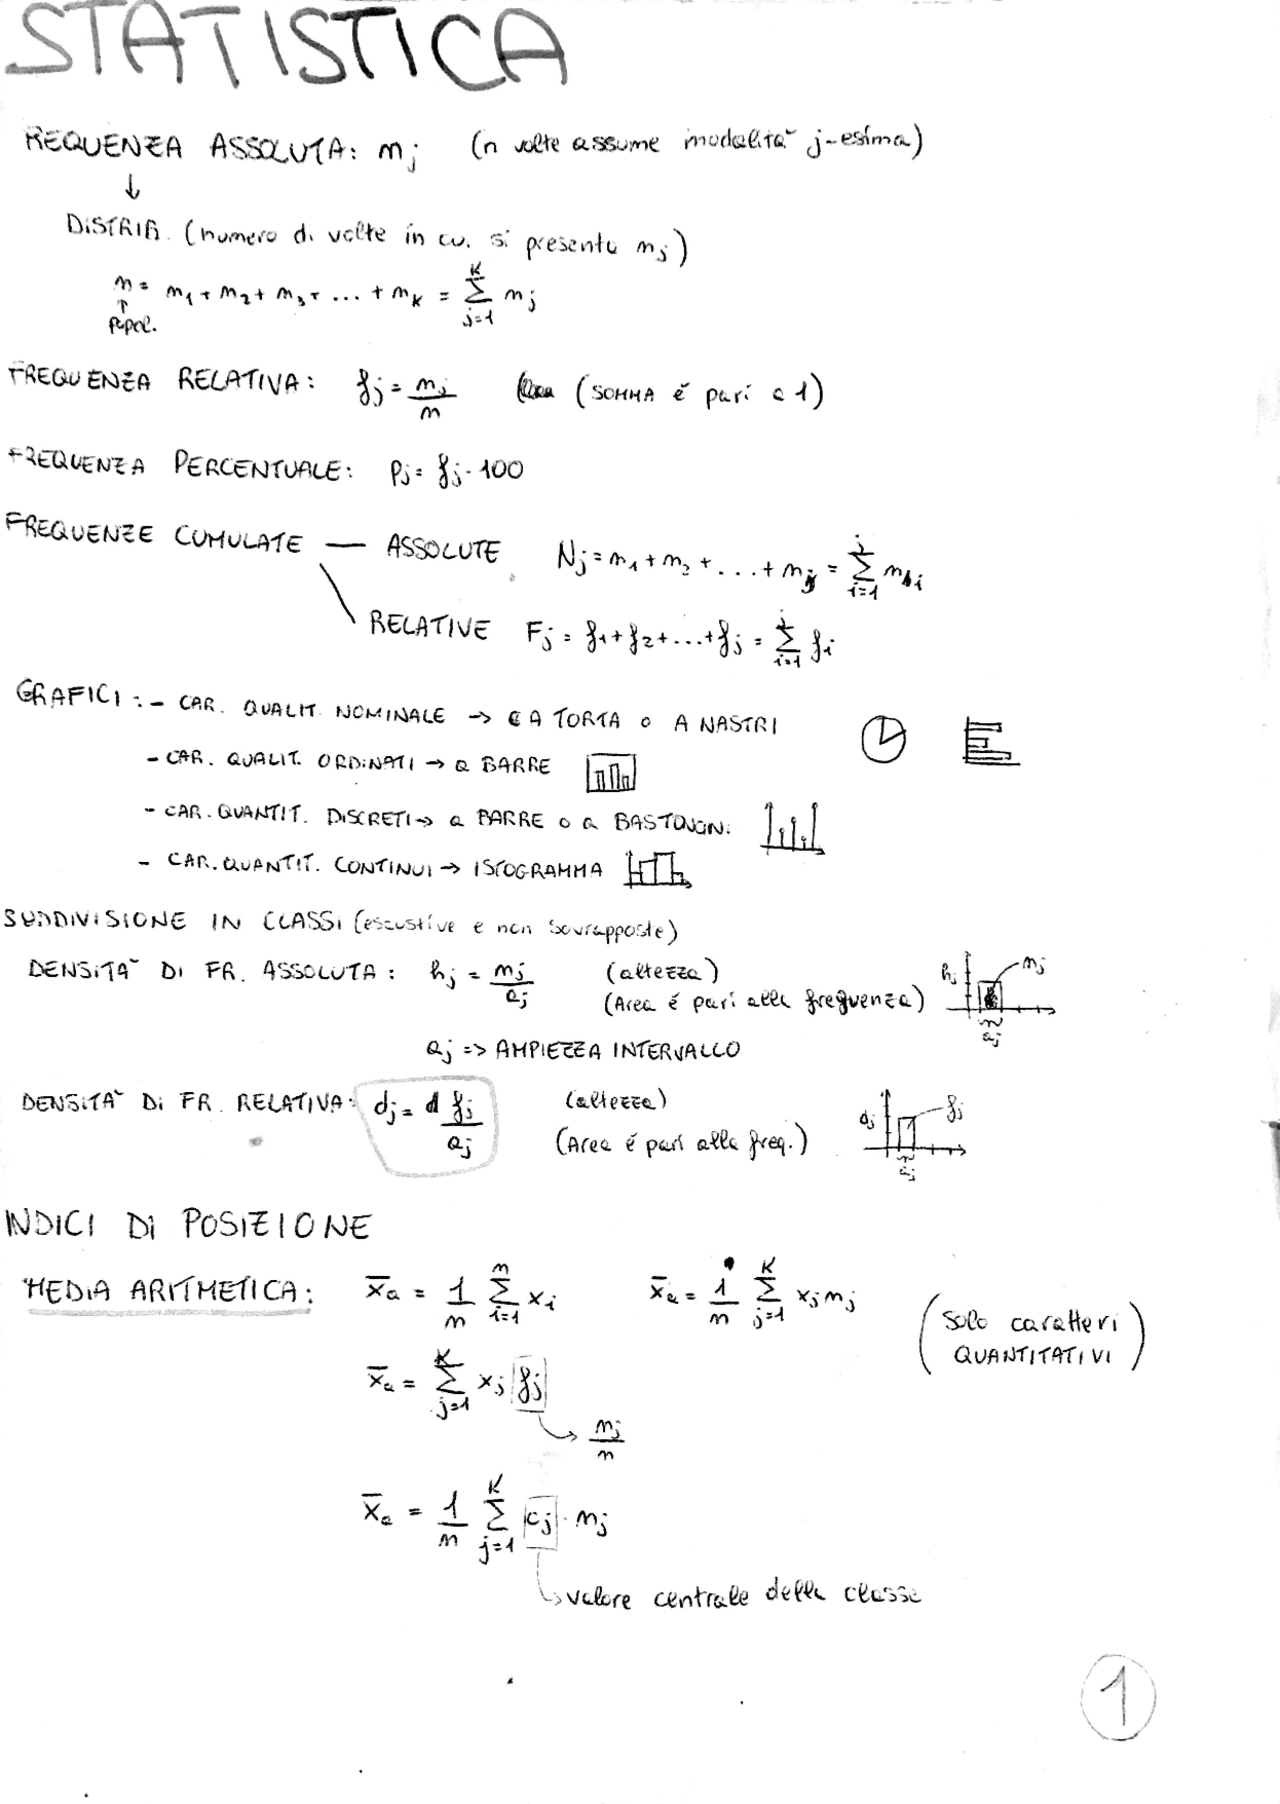 STATISTICA
REQUENZA ASSOLUTA: nj (n volte assume modalità j-esima)
↓
DISTRIB. (numero di volte in cui si presenta nj)
n = n1 + n2 + n3 + ... + nK = Σ_{j=1}^{K} nj
↑
Popol.
FREQUENZA RELATIVA: fj = nj/n (SOMMA é pari a 1)
FREQUENZA PERCENTUALE: Pj = fj · 100
FREQUENZE CUMULATE — ASSOLUTE Nj = n1 + n2 + ... + nj = Σ_{i=1}^{j} ni
RELATIVE Fj = f1 + f2 + ... + fj = Σ_{i=1}^{j} fi
GRAFICI: - CAR. QUALIT. NOMINALE → A TORTA O A NASTRI
- CAR. QUALIT. ORDINATI → a BARRE
- CAR. QUANTIT. DISCRETI → a BARRE O a BASTONCINI
- CAR. QUANTIT. CONTINUI → ISTOGRAMMA
SUDDIVISIONE IN CLASSI (esaustive e non sovrapposte)
DENSITA' DI FR. ASSOLUTA: hj = nj/aj (altezza)
(Area é pari alla frequenza) hj nj aj
aj => AMPIEZZA INTERVALLO
DENSITA' DI FR. RELATIVA: dj = fj/aj (altezza)
(Area é pari alla freq.) dj fj aj
INDICI DI POSIZIONE
MEDIA ARITMETICA: x̄a = 1/n Σ_{i=1}^{n} xi x̄a = 1/n Σ_{j=1}^{K} xj nj (Solo caratteri QUANTITATIVI)
x̄a = Σ_{j=1}^{K} xj fj
→ nj/n
x̄a = 1/n Σ_{j=1}^{K} cj · nj
↳ valore centrale della classe
1